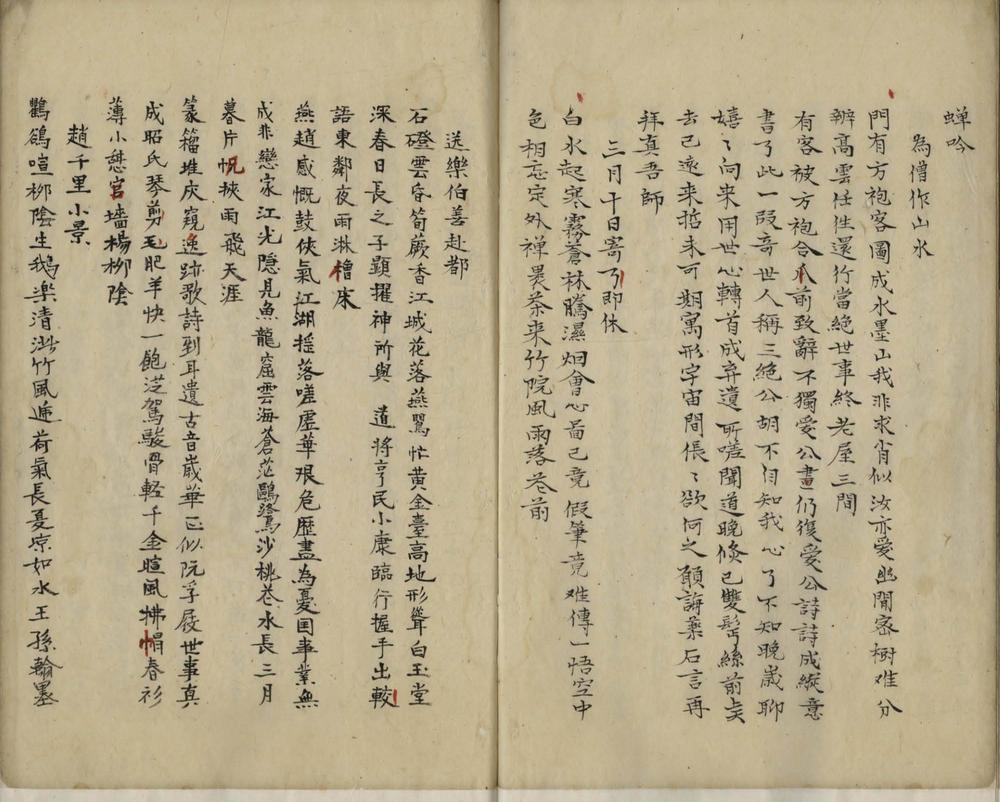 蟬吟
為僧作山水
門有方袍客圖成水墨山我非求肖似汝亦愛幽閒密樹难分
辨高雲任往還竹當絕世事終老屋三間
有客被方袍合爪前致辭不獨愛公畫仍復愛公詩詩成縱意
書了此一段奇世人稱三絕公胡不自知我心了不知晚歲聊
嬉〻向来用世心轉首成弃遺所嗟聞道晚倏已雙髩絲前矣
去已遠来哲未可期寓形宇宙間倀〻欲何之願誨藥石言再
拜真吾師
三月十日寄了即休
白水起寒霧蒼林騰濕烟會心啚已竟假筆竟难傳一悟空中
色相忘定外禅晨茶来竹院風雨落巷前
送樂伯善赴都
石磴雲昏筍蕨香江城花落燕鶯忙黄金臺高地形聳白玉堂
深春日長之子顯擢神所與 道将亨民小康臨行握手出較
語東鄰夜雨淋檜床
燕趙感慨鼓俠氣江湖摇落嗟虚華艰危歴盡為憂囯事業無
成非戀家江光隱見魚龍窟雲海蒼茫鷗鷺沙桃巷水長三月
暮片帆挾雨飛天涯
篆籀堆床窺逸跡歌詩到耳遺古音歲華正似阮孚屐世事真
成昭氏琴剪毛肥羊快一飽泛駕駿骨軽千金暄風拂帽春衫
薄小憇官墙楊栁陰
趙千里小景
鸛鵒喧栁陰生鵝樂清泚竹風逓荷氣長夏凉如水王孫翰墨